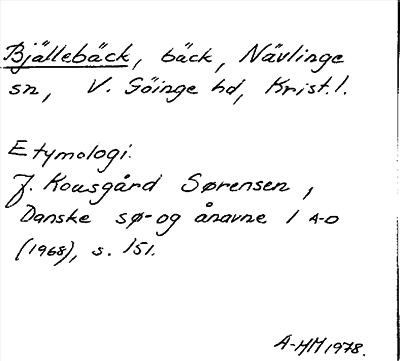 Bjällebäck, bäck, Nävlinge
sn, V. Göinge hd, Krist. l.
Etymologi:
J. Kousgård Sørensen,
Danske sø- og ånavne 1 A-D
(1968), s. 151.
A-HM 1978.